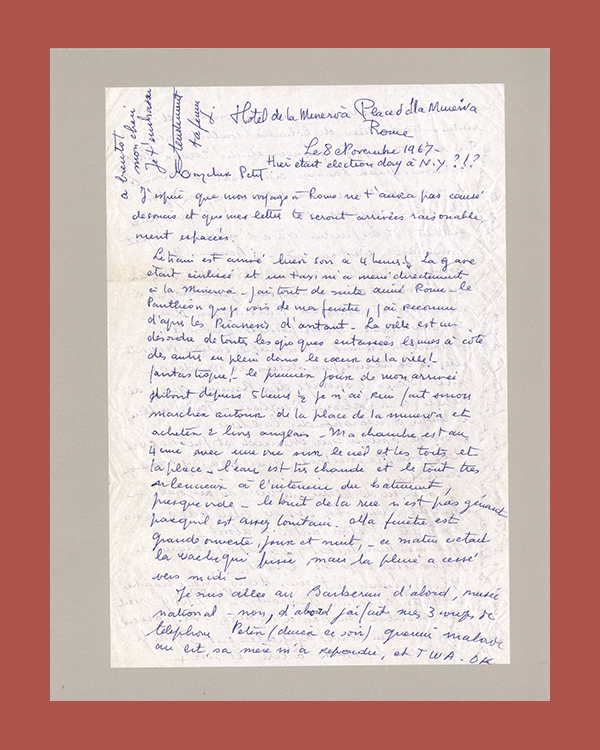 Hôtel de la Minerva Place della Minerva
Rome
Le 8 Novembre 1967-
Hier était election day à N.Y.?!?
Mon cher Petit
J'espère que mon voyage à Rome ne t'aura pas causé
de soucis et que mes lettres te seront arrivées raisonable
ment espacées.
Le train est arrivé hier soir à 4 heures ½ La gare
était et un taxi m'a mené directement
à la Minerva - J'ai tout de suite aimé Rome - le
Panthéon que je vois de ma fenêtre, j'ai reconnu
d'après les Piranesis d'antant - La ville est un
désordre de toutes les époques entassées les unes à côté
des autres en plein dans le cœur de la ville!-
fantastique!- le premier jour de mon arrivée
debout depuis 5 heures ½ je n'ai rien fait sinon
marcher autour de la place de la minerva et
acheter 2 livres anglais - Ma chambre est au
4ème avec une vue sur le ciel et les toits et
la place - l'eau est très chaude et le tout très
silencieux à l'interieur du batiment,
presque vide - le bruit de la rue n'est pas gênant
parcequ'il est assez lointain. Ma fenêtre est
grande ouverte jour et nuit, - ce matin c'était
la vache qui pisse mais la pluie a cessé
vers midi -
Je suis allée au Barberini d'abord, musée
national - non, d'abord j'ai fait mes 3 coups de
téléphone Peter (diner ce soir) malade
au lit, sa mère m'a repondu, et TWA - OK
à bientot
mon chéri
Je t'embrasse
tendrement
ta femme